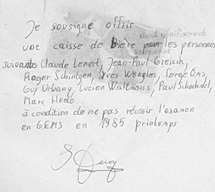 Je soussigné offrir
une caisse de bière pour les personnes
suivantes Claude Lenert, Jean-Paul Greisch,
Roger Schintgen, Yves Wengler, Serge Ons,
Guy Urbany, Lucien Waltmans, Paul Schockmel,
Marc Hredo
à condition de ne pas réussir l'examen
en GEMS en 1985 printemps